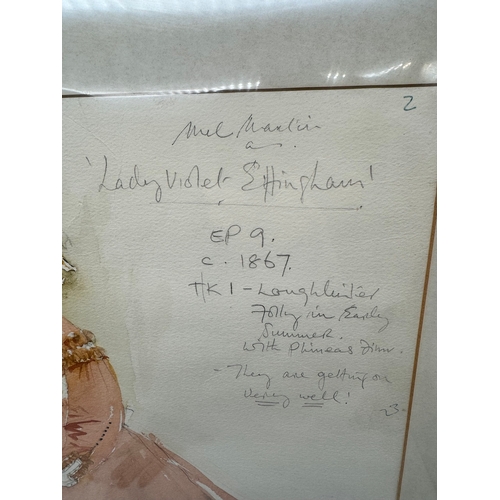 2
Mel Martin
as.
'Lady Violet Effingham'
EP 9.
c. 1867.
HK 1 - Loughlinter
Folly in Early
Summer.
with Phineas Finn.
- They are getting on
very well!
23.